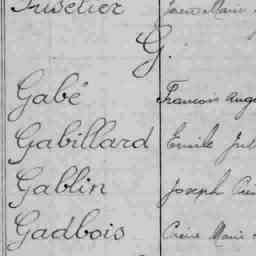 Juvelier Jean Marie
G.
Gabé François
Gabillard Emile
Gablin Joseph
Gadbois Marie